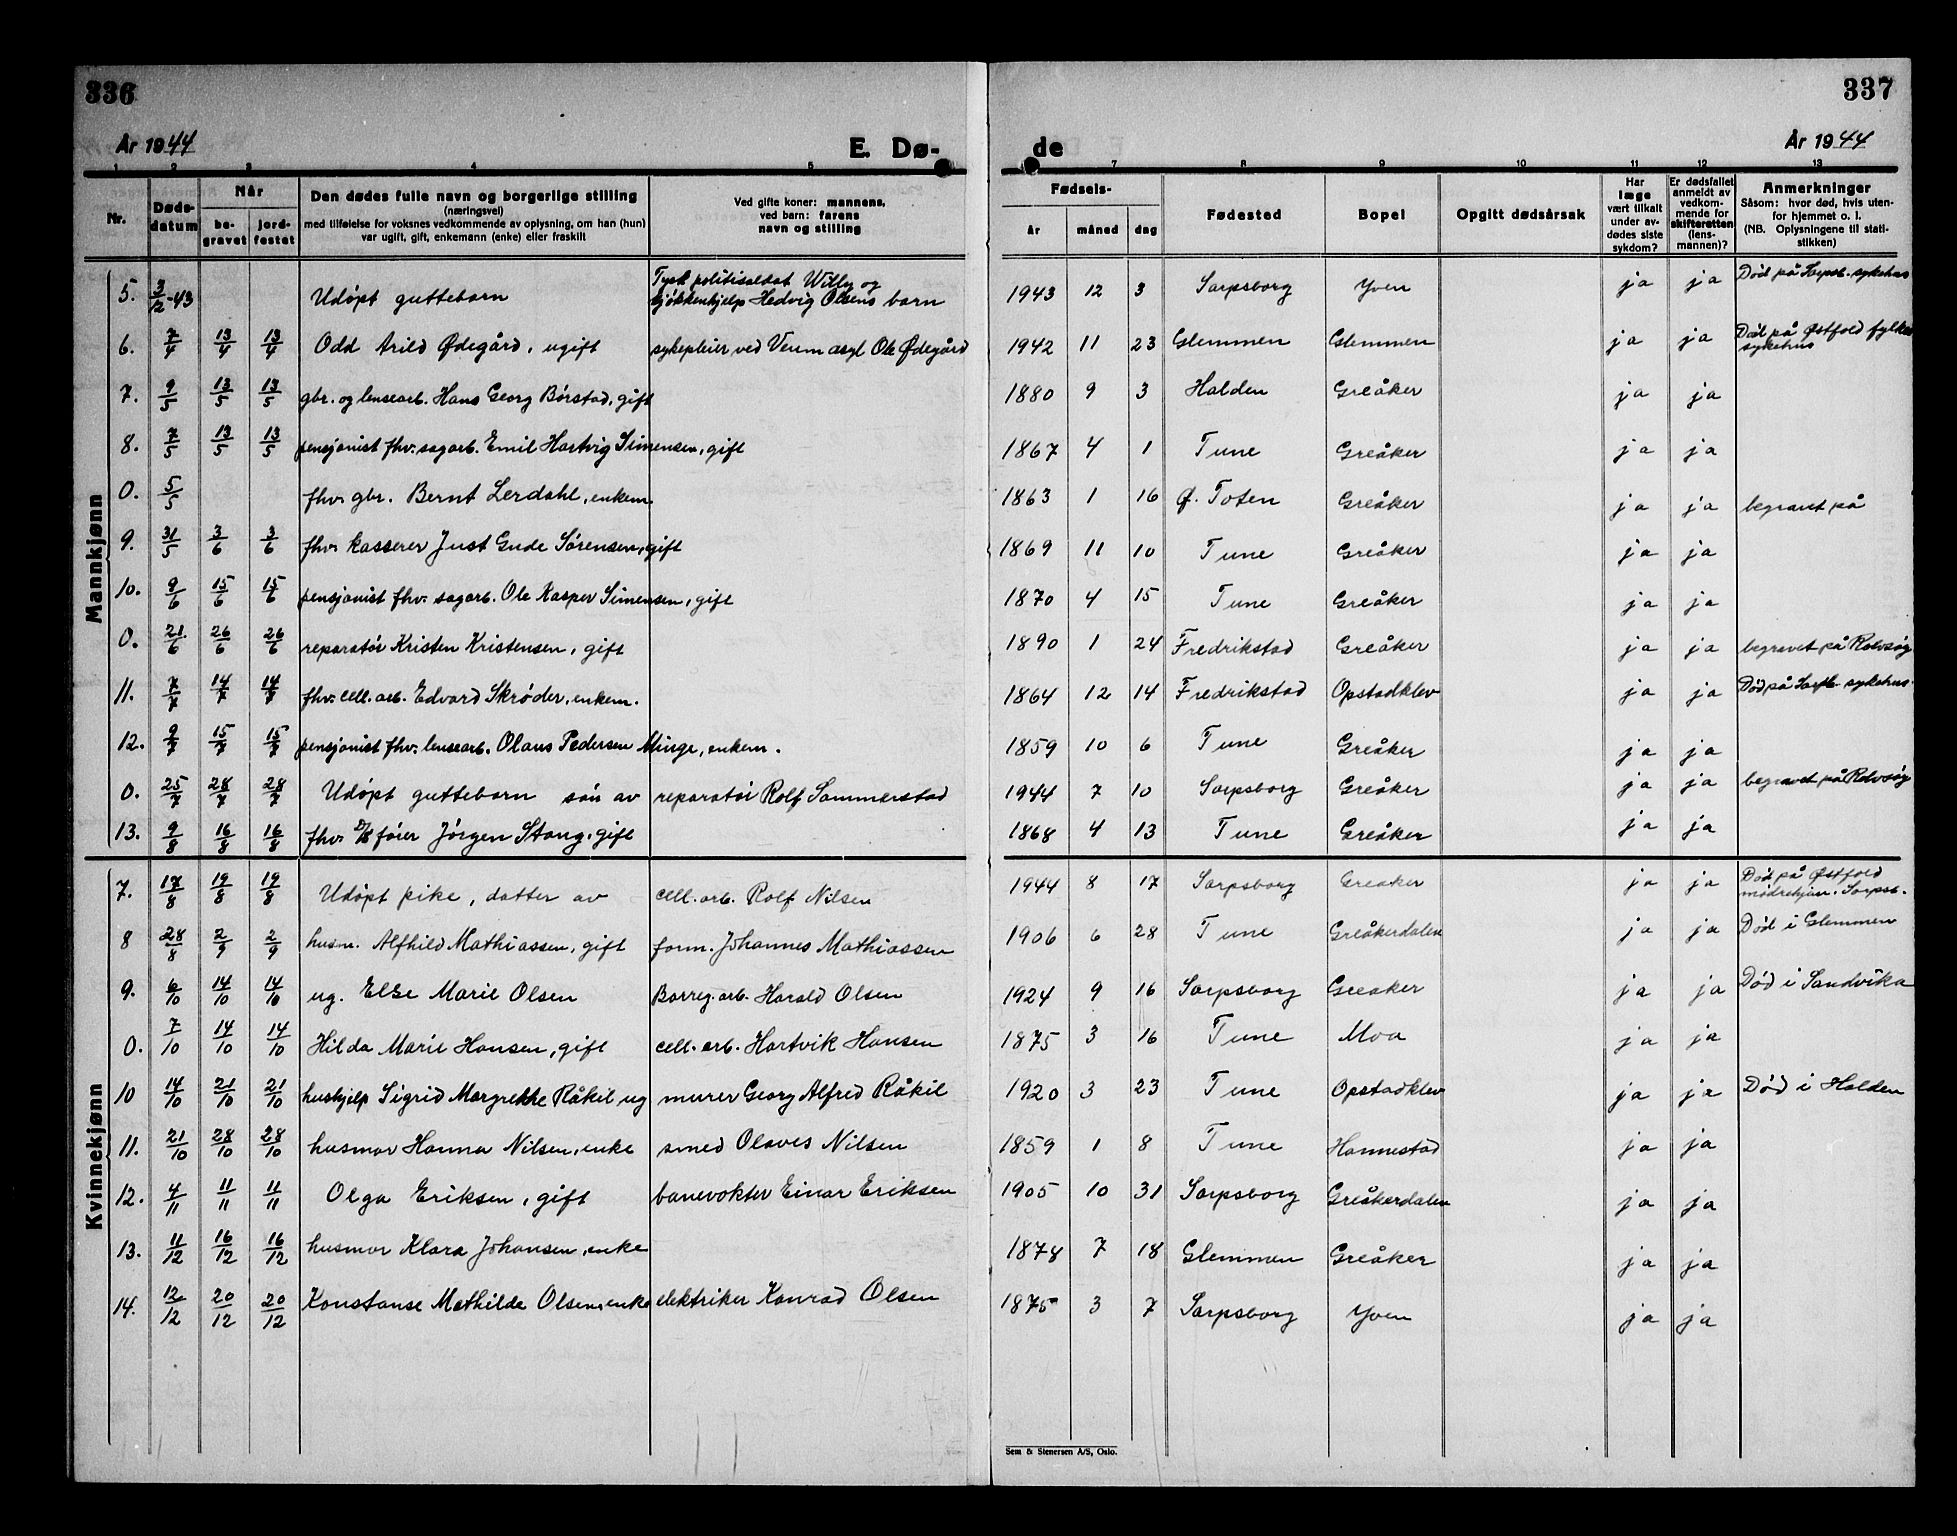 336
337
År 1944
E. Dø-
de
År 1944
1 2 3 4 5 7 8 9 10 11 12 13
Nr.
Døds-
datum
Når
be-
gravet
jord-
festet
Den dødes fulle navn og borgerlige stilling
(næringsvei)
med tilføielse for voksnes vedkommende av oplysning, om han (hun)
var ugift, gift, enkemann (enke) eller fraskilt
Ved gifte koner: mannens,
ved barn: farens
navn og stilling
Fødsels-
år
måned
dag
Fødested
Bopel
Opgitt dødsårsak
Har
læge
vært tilkalt
under av-
dødes siste
sykdom?
Er dødsfallet
anmeldt av
vedkom-
mende for
skifteretten
(lens-
mannen)?
Anmerkninger
Såsom: hvor død, hvis uten-
for hjemmet o. l.
(NB. Oplysningene til stati-
stikken)
Mannkjønn
5. 3/12-43 Udøpt guttebarn Tysk politisoldat Willy og kjøkkenhjelp Hedvig Olsens barn 1943 12 3 Sarpsborg Yven ja ja Død på Sarpsb. sykehus
6. 7/4 13/4 13/4 Odd Arild Ødegård, ugift sykepleier ved Veum asyl Ole Ødegård 1942 11 23 Glemmen Glemmen ja ja Død på Østfold fylkes sykehus
7. 9/5 13/5 13/5 gbr. og lensearb. Hans Georg Børstad, gift 1880 9 3 Halden Greåker ja ja
8. 7/5 13/5 13/5 pensjonist fhv. sagarb. Emil Hartvig Simensen, gift 1867 4 1 Tune Greåker ja ja
0. 5/5 fhv. gbr. Bernt Lerdahl, enkem. 1863 1 16 Ø. Toten Greåker ja ja begravet på
9. 31/5 3/6 3/6 fhv. kasserer Just Gude Sørensen, gift 1869 11 10 Tune Greåker ja ja
10. 9/6 15/6 15/6 pensjonist fhv. sagarb. Ole Kasper Simensen, gift 1870 4 15 Tune Greåker ja ja
0. 21/6 26/6 26/6 reparatør Kristen Kristensen, gift 1890 1 24 Fredrikstad Greåker ja ja begravet på Rolvsøy
11. 7/7 14/7 14/7 fhv. cell. arb. Edvard Skrøder, enkem. 1864 12 14 Fredrikstad Opstadklev ja ja Død på Sarpb. sykehus.
12. 9/7 15/7 15/7 pensjonist fhv. lensearb. Olaus Pedersen Minge, enkem. 1859 10 6 Tune Greåker ja ja
0. 25/7 28/7 28/7 Udøpt guttebarn søn av reparatør Rolf Sammerstad 1944 7 10 Sarpsborg Greåker ja ja begravet på Rolvsøy
13. 9/8 16/8 16/8 fhv. D/S fører Jørgen Stang, gift 1868 4 13 Tune Greåker ja ja
Kvinnekjønn
7. 17/8 19/8 19/8 Udøpt pike, datter av cell. arb. Rolf Nilsen 1944 8 17 Sarpsborg Greaker ja ja Død på Østfold mødrehjem. Sarpsb.
8 28/8 2/9 2/9 husm. Alfhild Mathiassen, gift form. Johannes Mathiassen 1906 6 28 Tune Greåkerdalen ja ja Død i Glemmen
9. 6/10 14/10 14/10 ug. Else Marie Olsen Borreg. arb. Harald Olsen 1924 9 16 Sarpsborg Greaker ja ja Død i Sandvika
0. 7/10 14/10 14/10 Hilda Marie Hansen, gift cell. arb. Hartvik Hansen 1875 3 16 Tune Moa ja ja
10 14/10 21/10 21/10 hushjelp Sigrid Margrethe Råkil ug murer Georg Alfred Råkil 1920 3 23 Tune Opstadklev ja ja Død i Halden
11. 21/10 28/10 28/10 husmor Hanna Nilsen, enke smed Olaves Nilsen 1859 1 8 Tune Hannestad ja ja
12. 4/11 11/11 11/11 Olga Eriksen, gift banevokter Einar Eriksen 1905 10 31 Sarpsborg Greåkerdalen ja ja
13. 11/12 16/12 16/12 husmor Klara Johansen, enke 1878 7 18 Glemmen Greåker ja ja
14. 12/12 20/12 20/12 Konstanse Mathilde Olsen, enke elektriker Konrad Olsen 1875 3 7 Sarpsborg Yven ja ja
Sem & Stenersen A/S, Oslo.